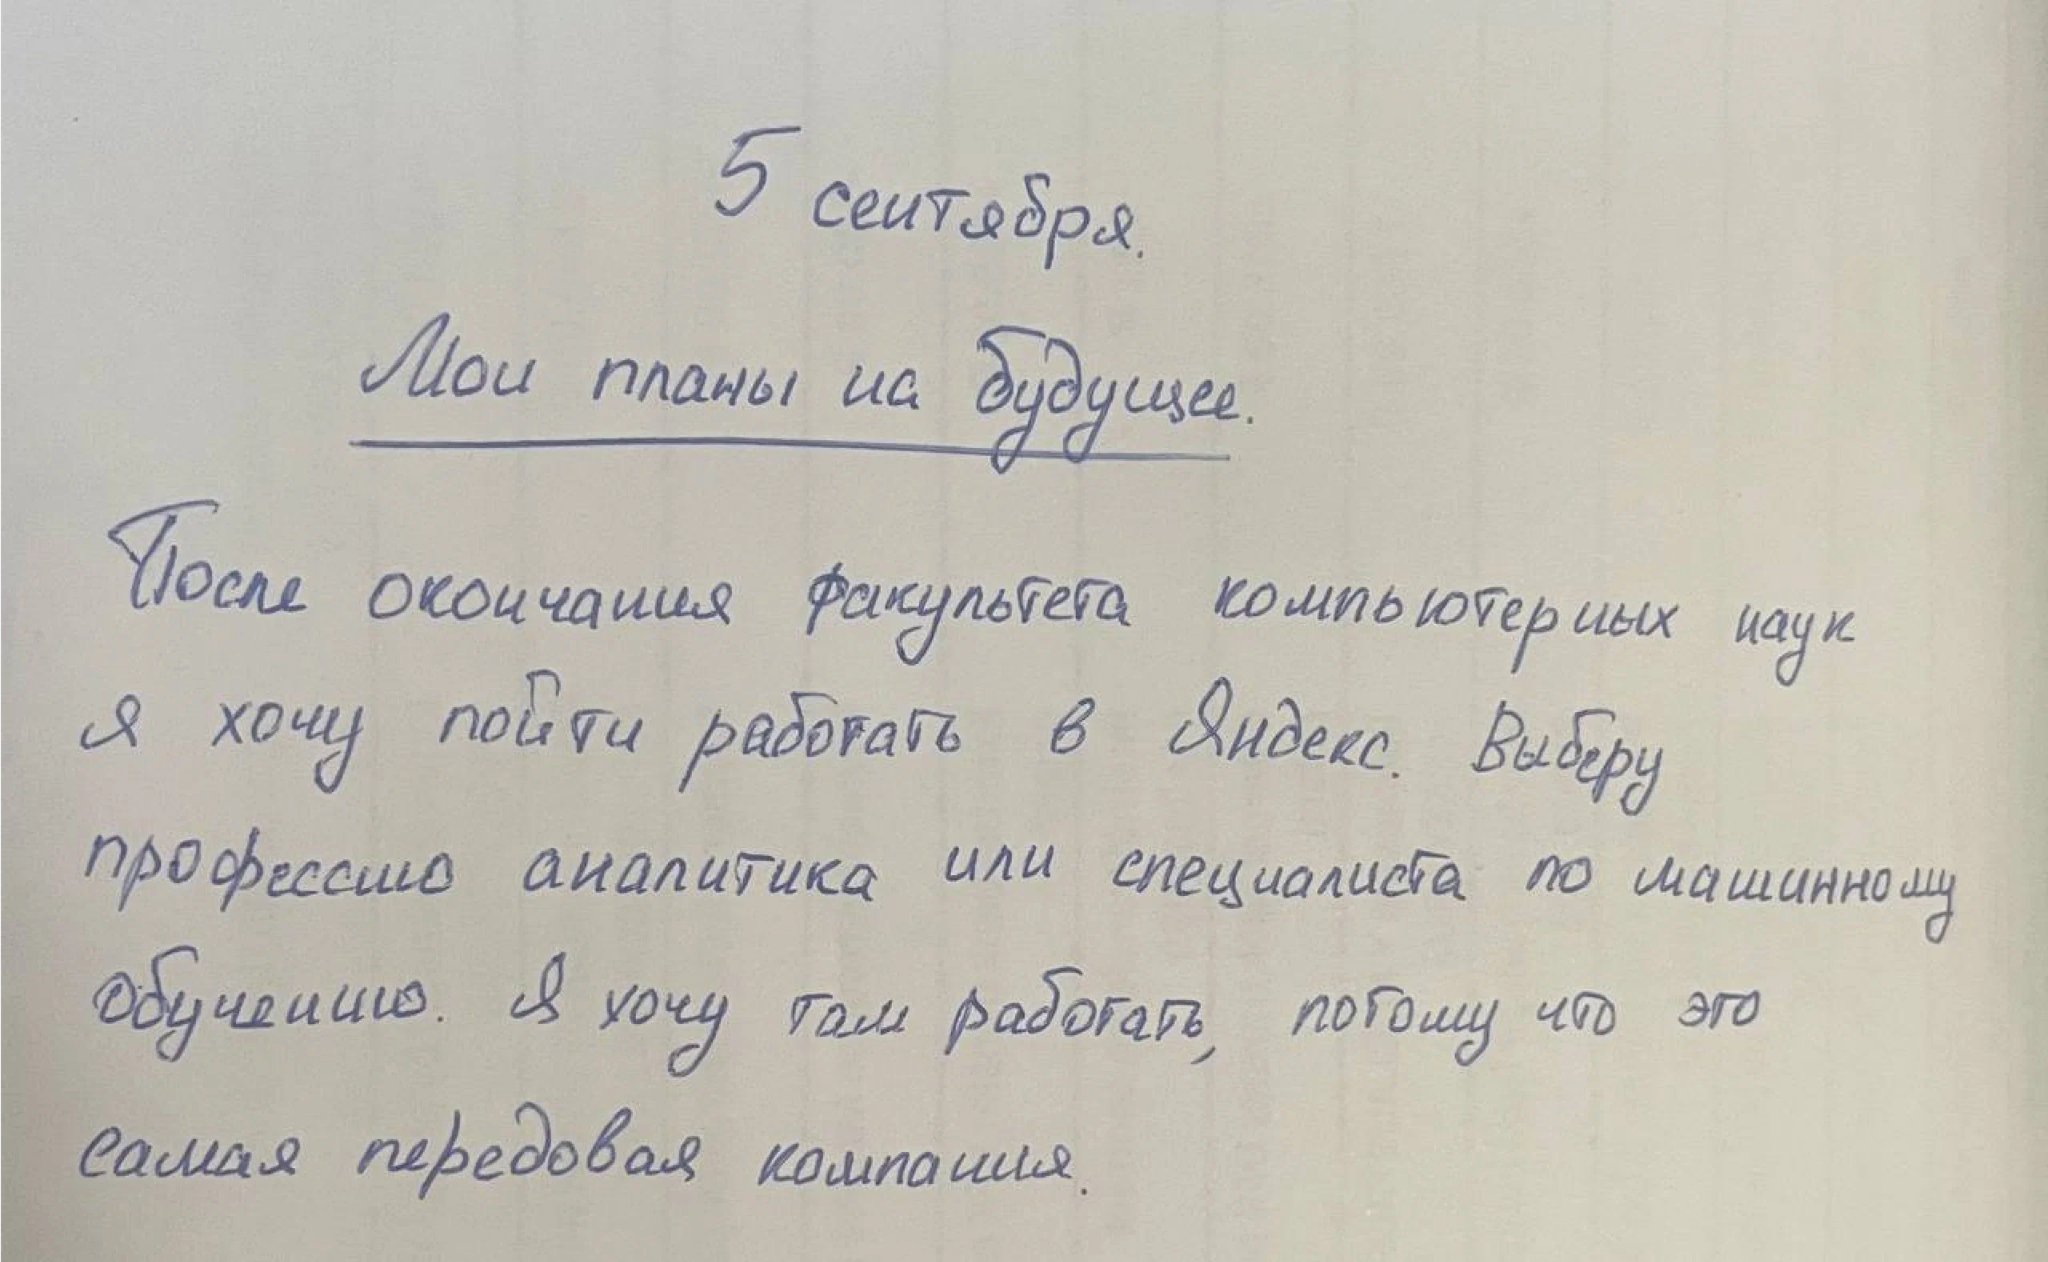 5 сентября.
Мои планы на будущее.
После окончания факультета компьютерных наук
я хочу пойти работать в Яндекс. Выберу
профессию аналитика или специалиста по машинному
обучению. Я хочу там работать, потому что это
самая передовая компания.